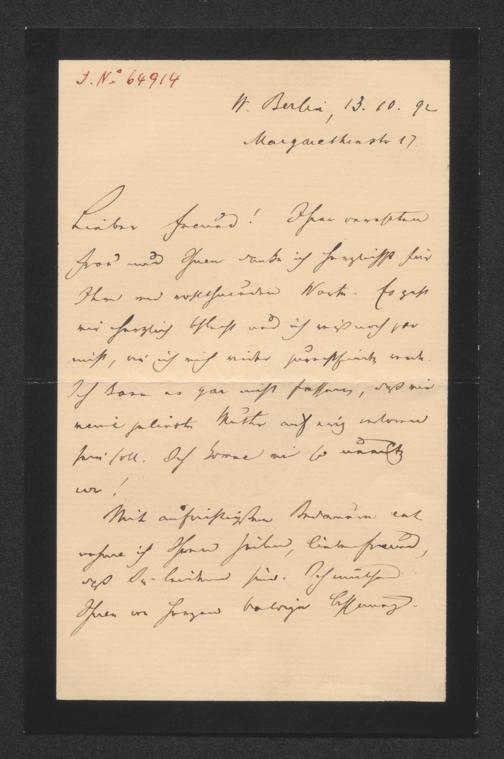 J. No 64914
W. Berlin, 13. 10. 92
Margarethenstr 17
Lieber Freund! Ihrer verehrten
Frau und Ihnen danke ich herzlichst für
Ihre Worte. Es geht
mir herzlich schlecht und ich weiß noch gar
nicht, wie ich mich wieder zurechtfinden werde.
Ich kann es gar nicht fassen, daß mir
meine geliebte Mutter auf ewig verloren
sein soll. Ich komme mir so unnütz
vor!
Mit aufrichtigem Bedauern ent
nehme ich Ihren Zeilen, lieber Freund,
daß Sie leidend sind. Ich wünsche
Ihnen von Herzen baldige Besserung.